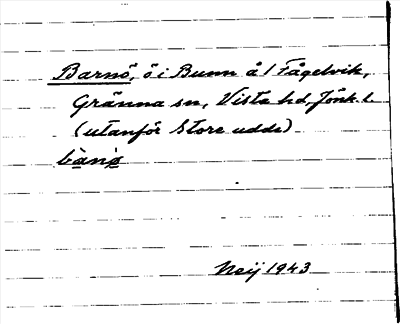 Barnö, ö i Bunn å 1 Fågelvik,
Gränna sn, Vista hd, Jönk. l.
(utanför Store udde)
bànø
Neij 1943